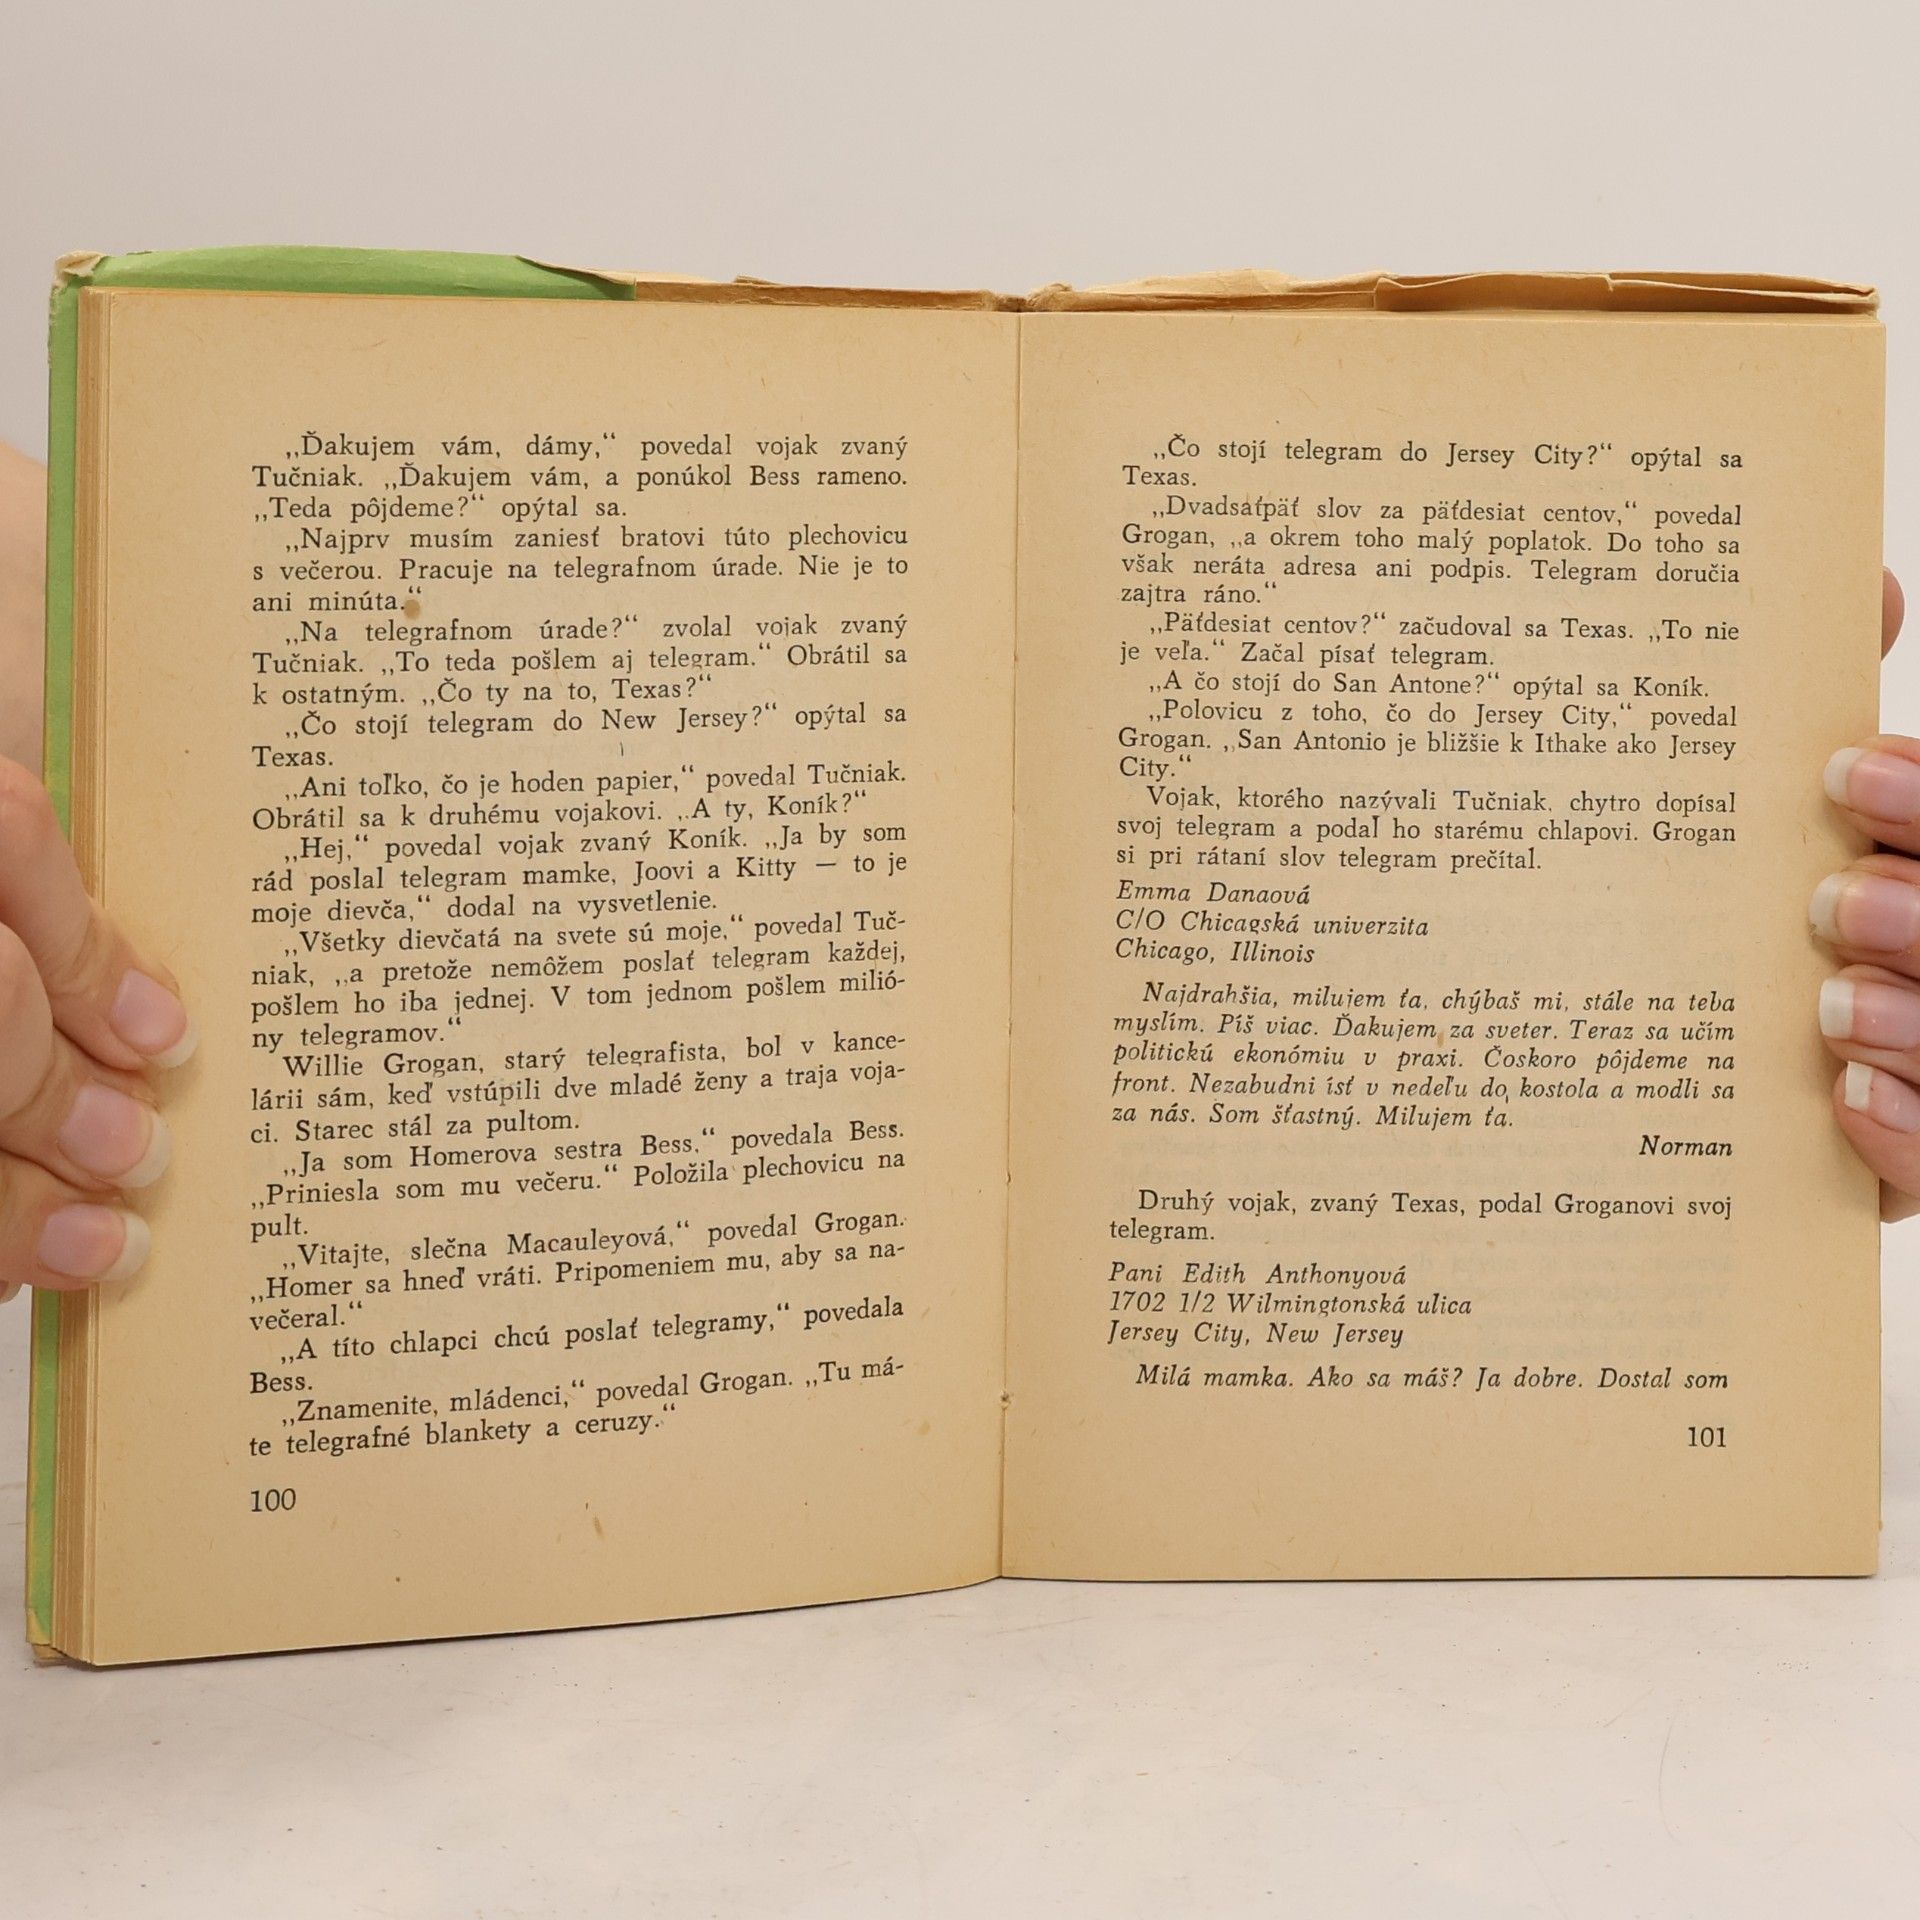 „Ďakujem vám, dámy,“ povedal vojak zvaný
Tučniak. „Ďakujem vám, a ponúkol Bess rameno.
„Teda pôjdeme?“ opýtal sa.
„Najprv musím zaniesť bratovi túto plechovicu
s večerou. Pracuje na telegrafnom úrade. Nie je to
ani minúta.“
„Na telegrafnom úrade?“ zvolal vojak zvaný
Tučniak. „To teda pošlem aj telegram.“ Obrátil sa
k ostatným. „Čo ty na to, Texas?“
„Čo stojí telegram do New Jersey?“ opýtal sa
Texas.
„Ani toľko, čo je hoden papier,“ povedal Tučniak.
Obrátil sa k druhému vojakovi. „A ty, Koník?“
„Hej,“ povedal vojak zvaný Koník. „Ja by som
rád poslal telegram mamke, Joovi a Kitty — to je
moje dievča,“ dodal na vysvetlenie.
„Všetky dievčatá na svete sú moje,“ povedal Tuč-
niak, „a pretože nemôžem poslať telegram každej,
pošlem ho iba jednej. V tom jednom pošlem milió-
ny telegramov.“
Willie Grogan, starý telegrafista, bol v kance-
lárii sám, keď vstúpili dve mladé ženy a traja voja-
ci. Starec stál za pultom.
„Ja som Homerova sestra Bess,“ povedala Bess.
„Priniesla som mu večeru.“ Položila plechovicu na
pult.
„Vitajte, slečna Macauleyová,“ povedal Grogan.
„Homer sa hneď vráti. Pripomeniem mu, aby sa na-
večeral.“
„A títo chlapci chcú poslať telegramy,“ povedala
Bess.
„Znamenite, mládenci,“ povedal Grogan. „Tu má-
te telegrafné blankety a ceruzy.“
100
„Čo stojí telegram do Jersey City?“ opýtal sa
Texas.
„Dvadsaťpäť slov za päťdesiat centov,“ povedal
Grogan, „a okrem toho malý poplatok. Do toho sa
však neráta adresa ani podpis. Telegram doručia
zajtra ráno.“
„Päťdesiat centov?“ začudoval sa Texas. „To nie
je veľa.“ Začal písať telegram.
„A čo stojí do San Antone?“ opýtal sa Koník.
„Polovicu z toho, čo do Jersey City,“ povedal
Grogan. „San Antonio je bližšie k Ithake ako Jersey
City.“
Vojak, ktorého nazývali Tučniak, chytro dopísal
svoj telegram a podal ho starému chlapovi. Grogan
si pri rátaní slov telegram prečítal.
Emma Danaová
C/O Chicagská univerzita
Chicago, Illinois
Najdrahšia, milujem ťa, chýbaš mi, stále na teba
myslím. Píš viac. Ďakujem za sveter. Teraz sa učím
politickú ekonómiu v praxi. Čoskoro pôjdeme na
front. Nezabudni ísť v nedeľu do kostola a modli sa
za nás. Som šťastný. Milujem ťa.
Norman
Druhý vojak, zvaný Texas, podal Groganovi svoj
telegram.
Pani Edith Anthonyová
1702 1/2 Wilmingtonská ulica
Jersey City, New Jersey
Milá mamka. Ako sa máš? Ja dobre. Dostal som
101